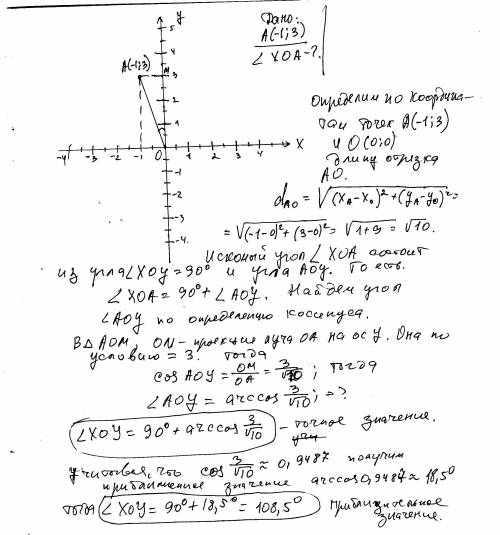 y
5
4
A(-1;3)
M
3
2
1
-4 -3 -2 -1 0 1 2 3 4 X
-1
-2
-3
-4
Дано:
A(-1;3)
∠ XOA -?
Определим по координа-
там точек A(-1;3)
и O(0;0)
длину отрезка
AO.
d_AO = √((x_A-x_0)² + (y_A-y_0)²) =
= √((-1-0)² + (3-0)²) = √(1+9) = √10.
Искомый угол ∠ XOA состоит
из угла ∠XOY = 90° и угла AOY. То есть.
∠ XOA = 90° + ∠ AOY. Найдем угол
∠AOY по определению косинуса.
В Δ AOM, ON - проекция луча OA на ось Y. Она по
условию = 3. тогда
cos AOY = OM/OA = 3/√10; тогда
∠ AOY = arccos 3/√10; =>
∠XOY = 90° + arccos 3/√10 - точное значение.
учитывая, что cos 3/√10 ≈ 0,9487 получим
приближенное значение arccos 0,9487 ≈ 18,5°
тогда ∠ XOY = 90° + 18,5° = 108,5° приблизительное
значение.